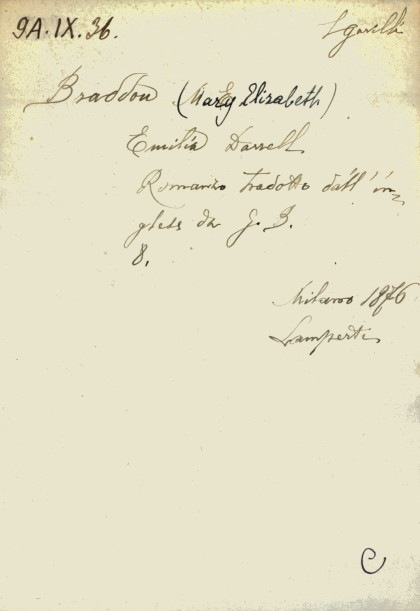 9A.IX.36.
Braddon (Mary Elizabeth)
Emilia Darrell
Romanzo tradotto dall' in-
glese da G. B.
8.
Milano 1876
Lamperti
C